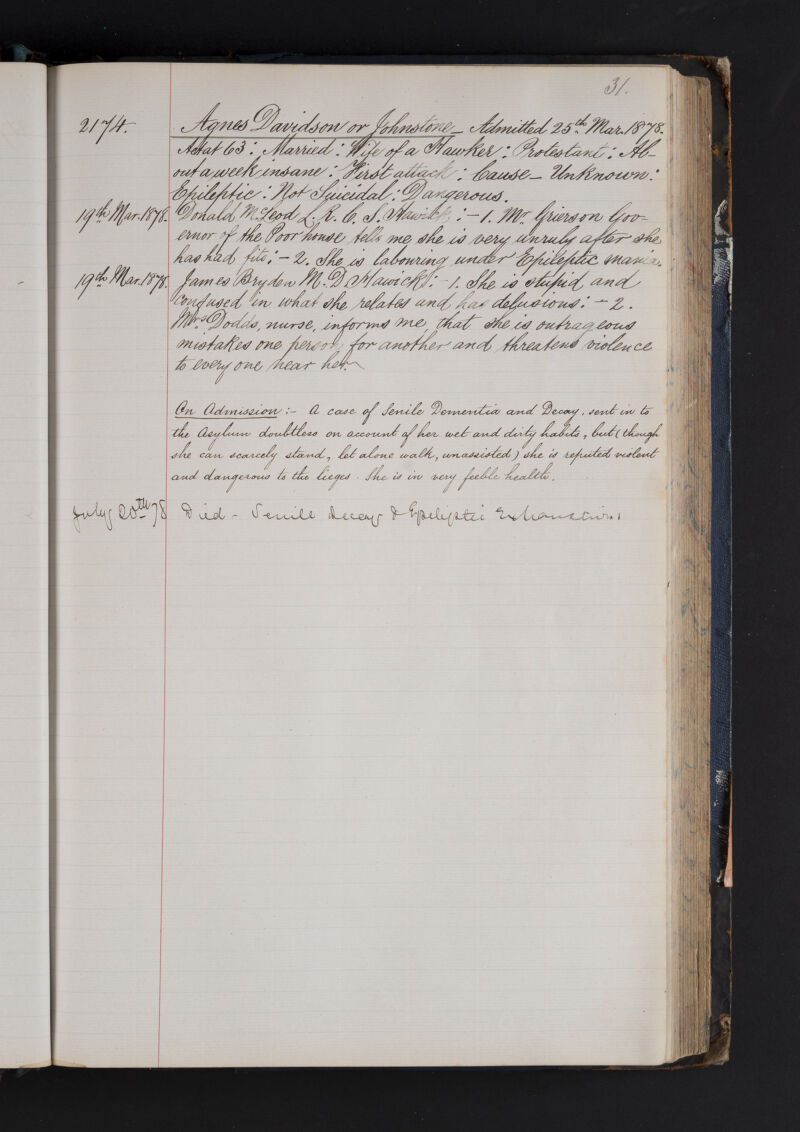 31.
2174. Agnes Davidson or Johnstone _ Admitted 25th Mar. 1878.
Aetat 63 : Married : Wife of a Hawker : Protestant : Ab-
out a week insane : First attack : Cause _ Unknown :
Epileptic : Not Suicidal : Dangerous.
19th Mar. 1878. Donald McLeod L. R. C. S. Hawick : - 1. Mr Grierson Gov=
ernor of the Poor house tells me she is very unruly after she
has had fits : - 2. She is labouring under Epileptic mania.
19th Mar. 1878. James Bryden M. D. Hawick : - 1. She is stupid and
confused in what she relates and has delusions : - 2.
Mrs Dodds, nurse, informs me, that she is outrageous
mistakes one person for another and threatens violence
to every one near her.
On Admission :- A case of Senile Dementia and Decay, sent in to
the Asylum doubtless on account of her wet and dirty habits, but (though
she can scarcely stand, let alone walk, unassisted) she is reputed violent
and dangerous to the lieges. She is in very feeble health.
July 20th 78 Died - Senile decay & Epileptic Exhaustion